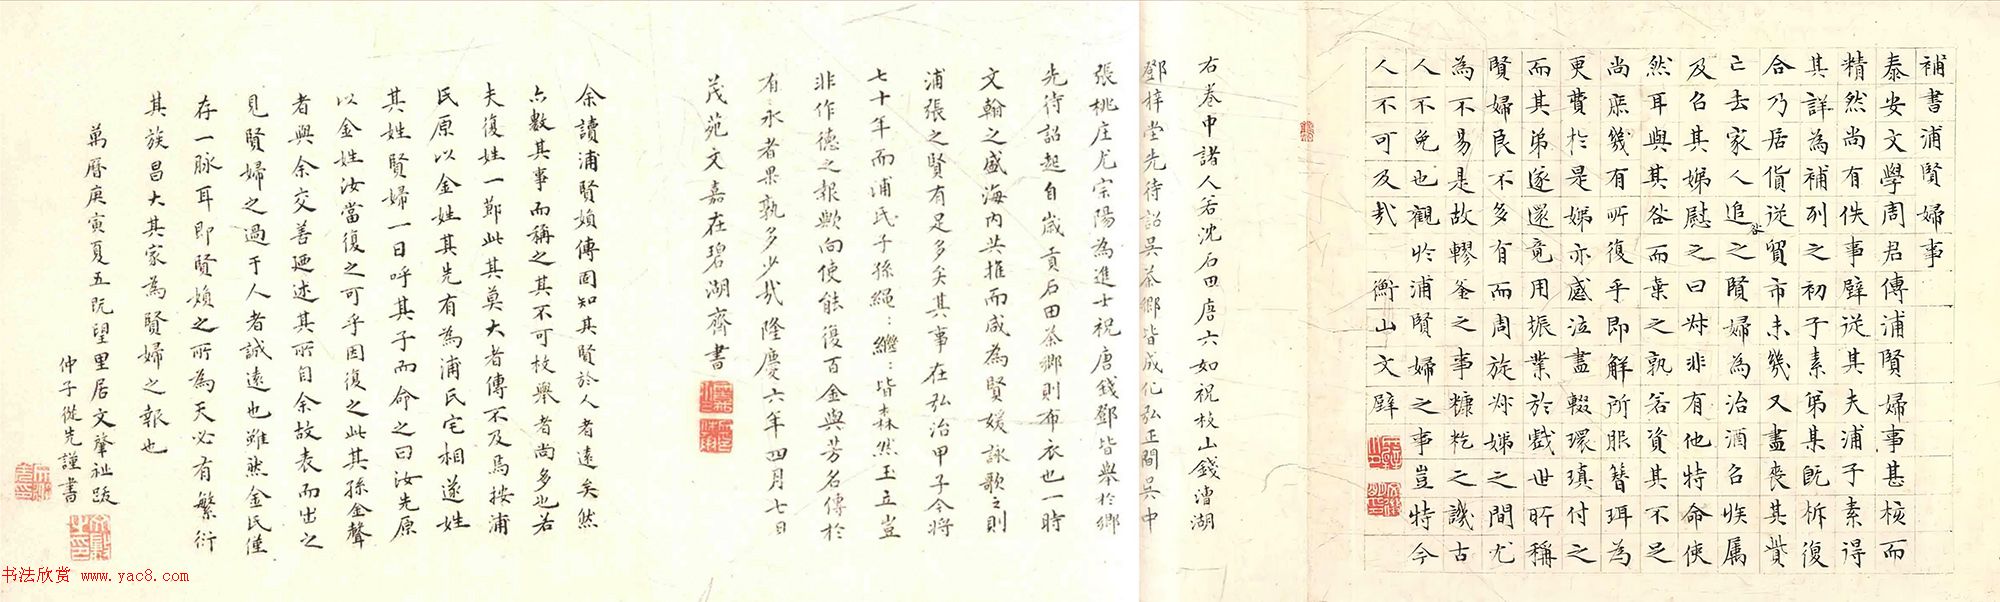 補書浦賢婦事
泰安文學周君傳浦賢婦事甚核而
精然尚有佚事壁從其夫浦子素得
其詳為補列之初子素弟某既柝復
合乃居貨從賈市未幾又盡喪其貲
亡去家人追之賢婦為治酒召族属
及召其娣慰之曰叔非有他特命使
然耳與其咎而棄之孰若資其不足
尚庶幾有所復乎即解所服簪珥為
更費於是娣亦感泣盡輟環瑱付之
而其弟遂還竟用振業於戲世所稱
賢婦良不多有而周旋叔娣之間尤
為不易是故轑釜之事糠籺之譏古
人不免也觀於浦賢婦之事豈特今
人不可及哉 衡山文壁
右卷中諸人若沈石田唐六如祝枝山錢漕湖
鄧梓堂先待詔吳茶鄉皆成化弘正間吳中
張桃庄尤宗陽為進士祝唐錢鄧皆舉於鄉
先待詔起自歲貢石田茶鄉則布衣也一時
文翰之盛海內共推而咸為賢媛詠歌之則
浦張之賢有足多矣其事在弘治甲子今將
七十年而浦氏子孫繩：繼：皆森然玉立豈
非作德之報歟向使能復百金與芳名傳於
有永者果孰多少哉隆慶六年四月七日
茂苑文嘉在碧湖齋書
余讀浦賢媍傳固知其賢於人者遠矣然
亦數其事而稱之其不可枚舉者尚多也若
夫復姓一節此其莫大者傳不及焉按浦
民原以金姓其先有為浦氏宅相遂姓
其姓賢婦一日呼其子而命之曰汝先原
以金姓汝當復之可乎因復之此其孫金聲
者與余交善廼述其所自余故表而出之
見賢婦之過于人者誠遠也雖然金民僅
存一脉耳即賢媍之所為天必有繁衍
其族昌大其家為賢婦之報也
萬曆庚寅夏五既望里居文肇祉跋
仲子從先謹書
书法欣赏 www.yac8.com